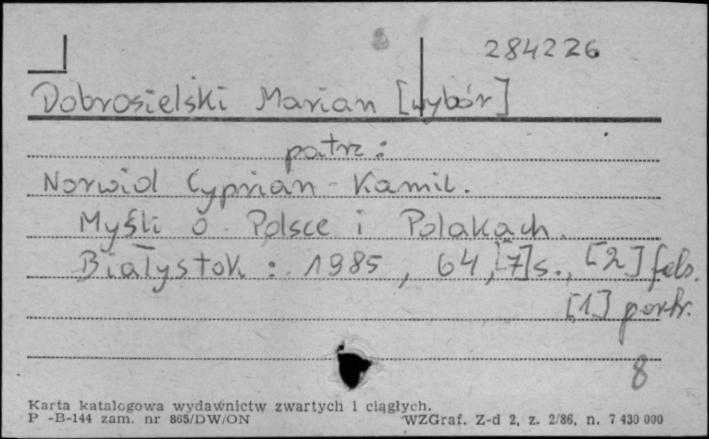 284226
Dobrosielski Marian [wybór]
patrz:
Norwid Cyprian - Kamil.
Myśli o Polsce i Polakach.
Białystok : 1985, 64, [7] s., [2] faks.
[1] portr.
8
Karta katalogowa wydawnictw zwartych i ciągłych.
P -B-144 zam. nr 865/DW/ON WZGraf. Z-d 2, z. 2/86, n. 7 430 000